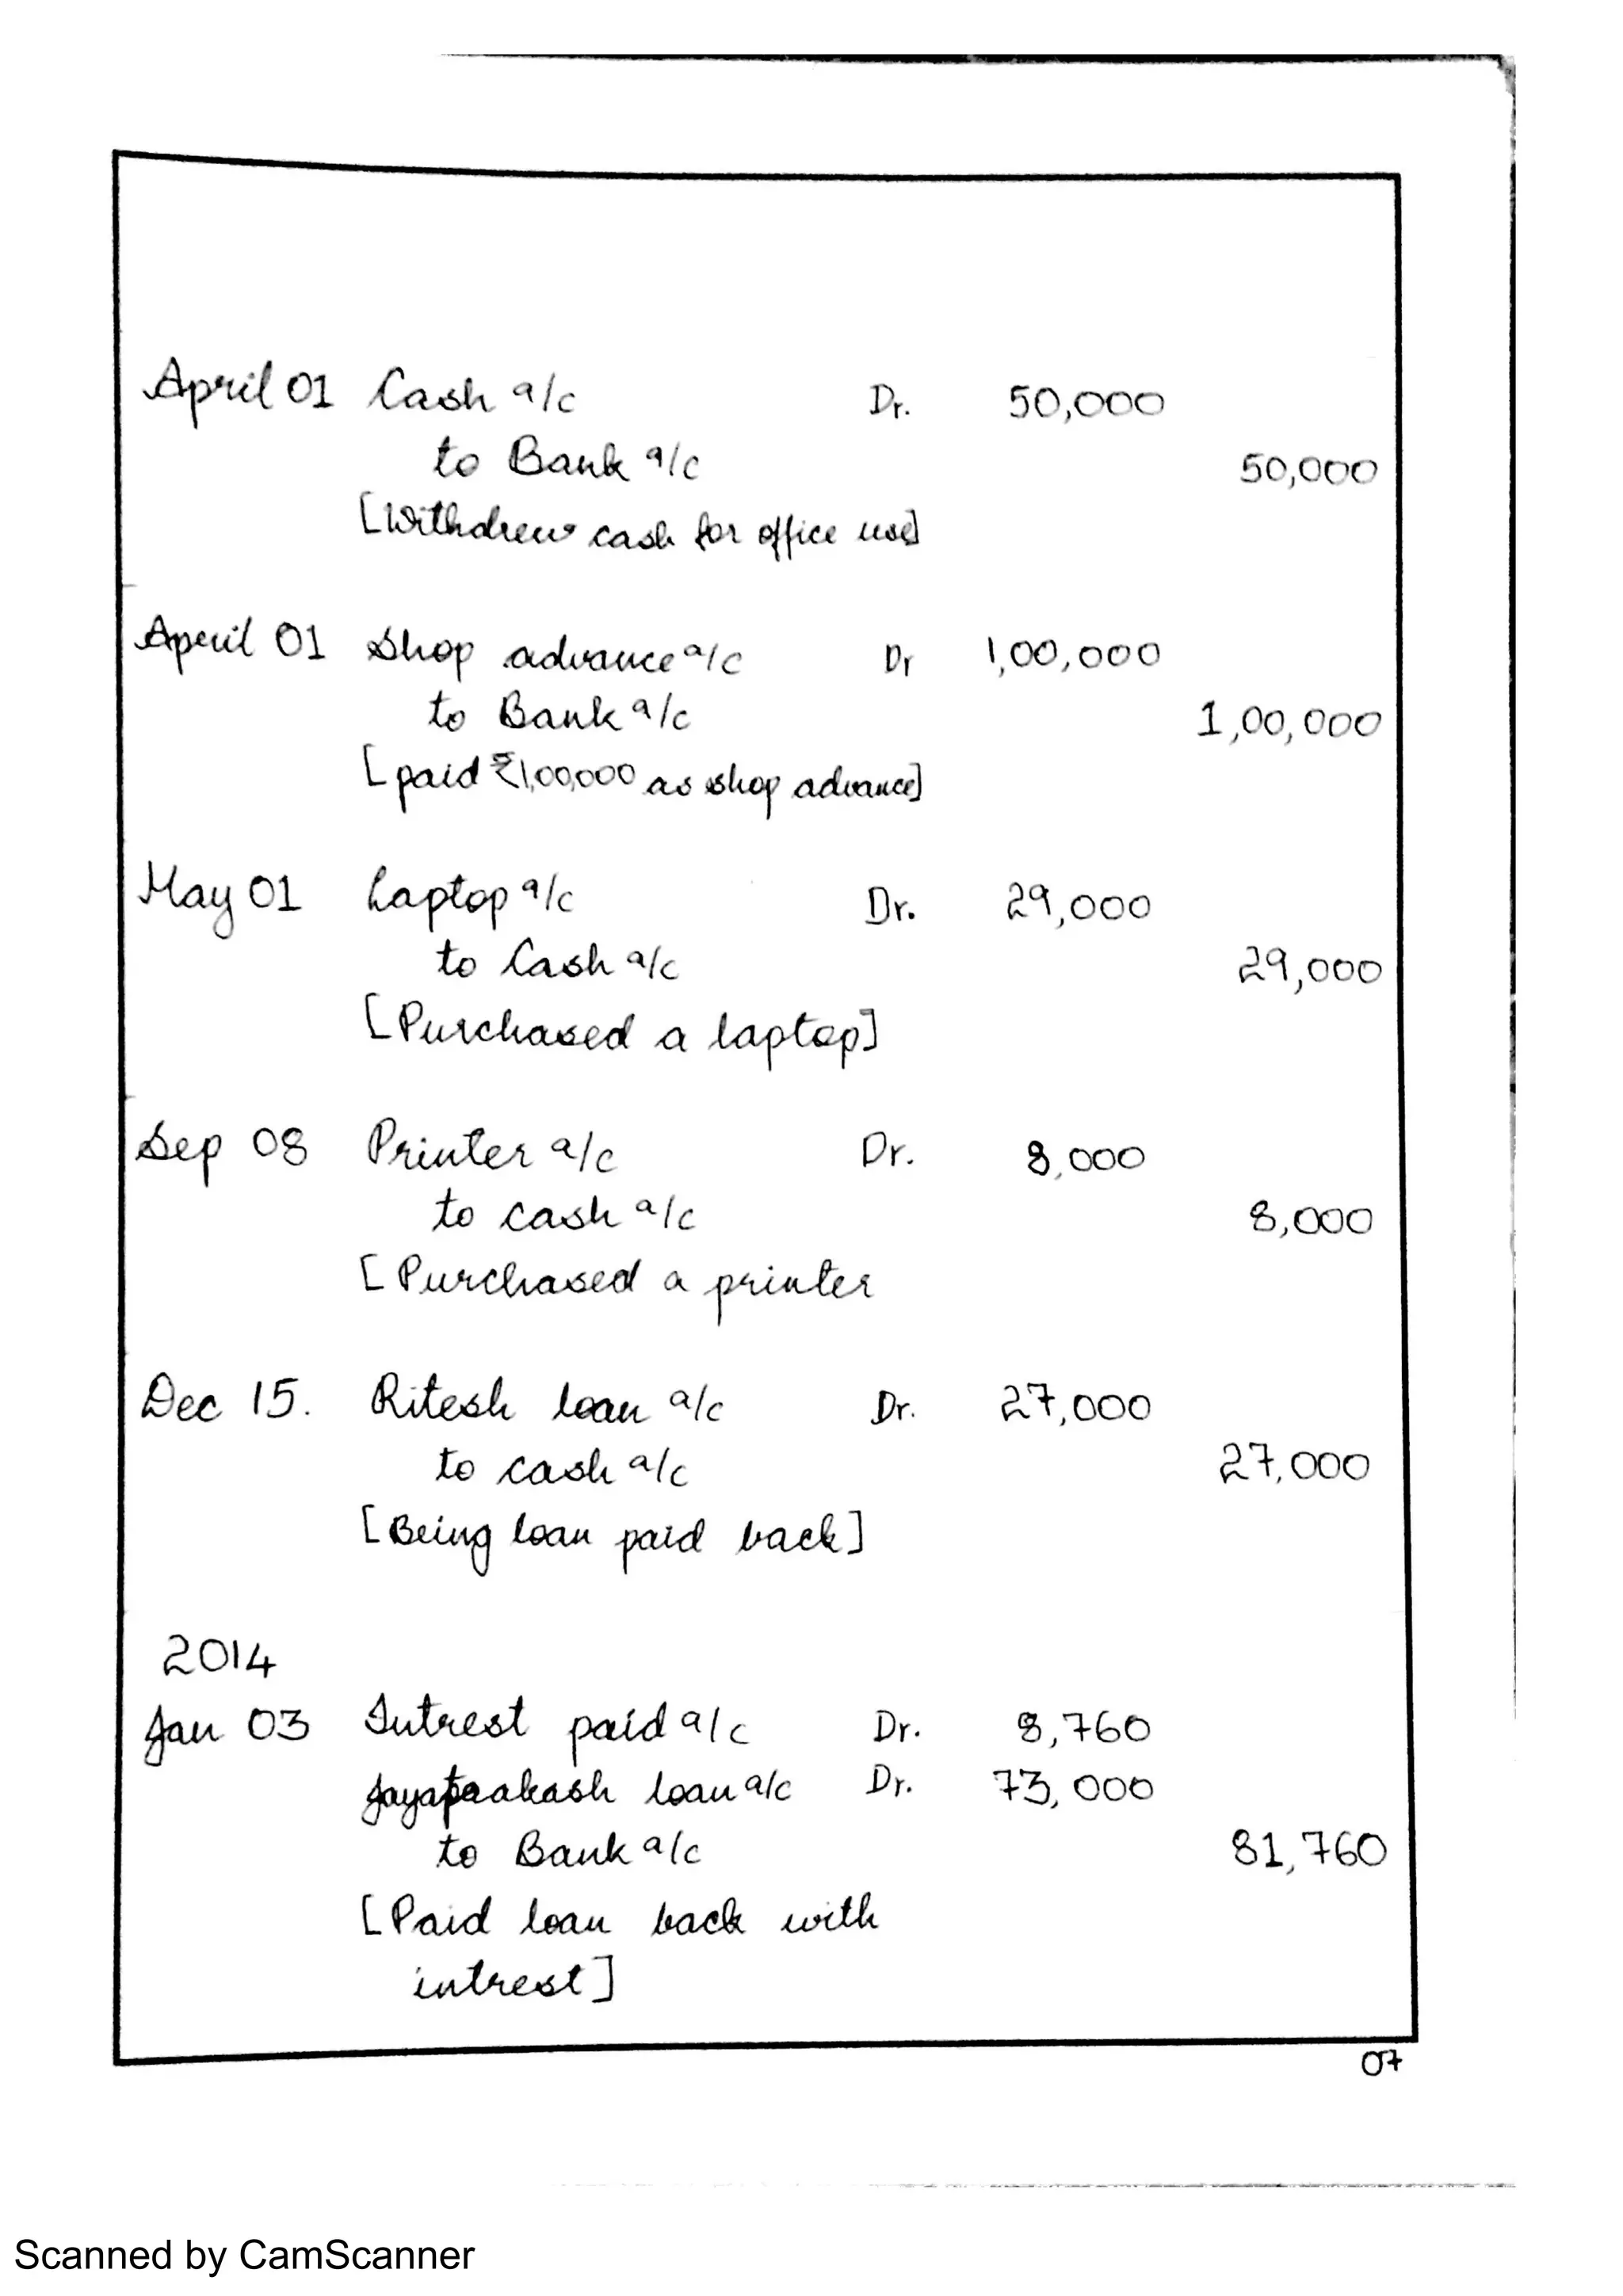 April 01 Cash a/c Dr. 50,000
to Bank a/c 50,000
[Withdrew cash for office use]
April 01 Shop advance a/c Dr 1,00,000
to Bank a/c 1,00,000
[paid ₹1,00,000 as shop advance]
May 01 Laptop a/c Dr. 29,000
to Cash a/c 29,000
[Purchased a laptop]
Sep 08 Printer a/c Dr. 8,000
to cash a/c 8,000
[Purchased a printer
Dec 15. Ritesh loan a/c Dr. 27,000
to cash a/c 27,000
[Being loan paid back]
2014
Jan 03 Intrest paid a/c Dr. 8,760
Jayaprakash loan a/c Dr. 73,000
to Bank a/c 81,760
[Paid loan back with
intrest]
07
Scanned by CamScanner